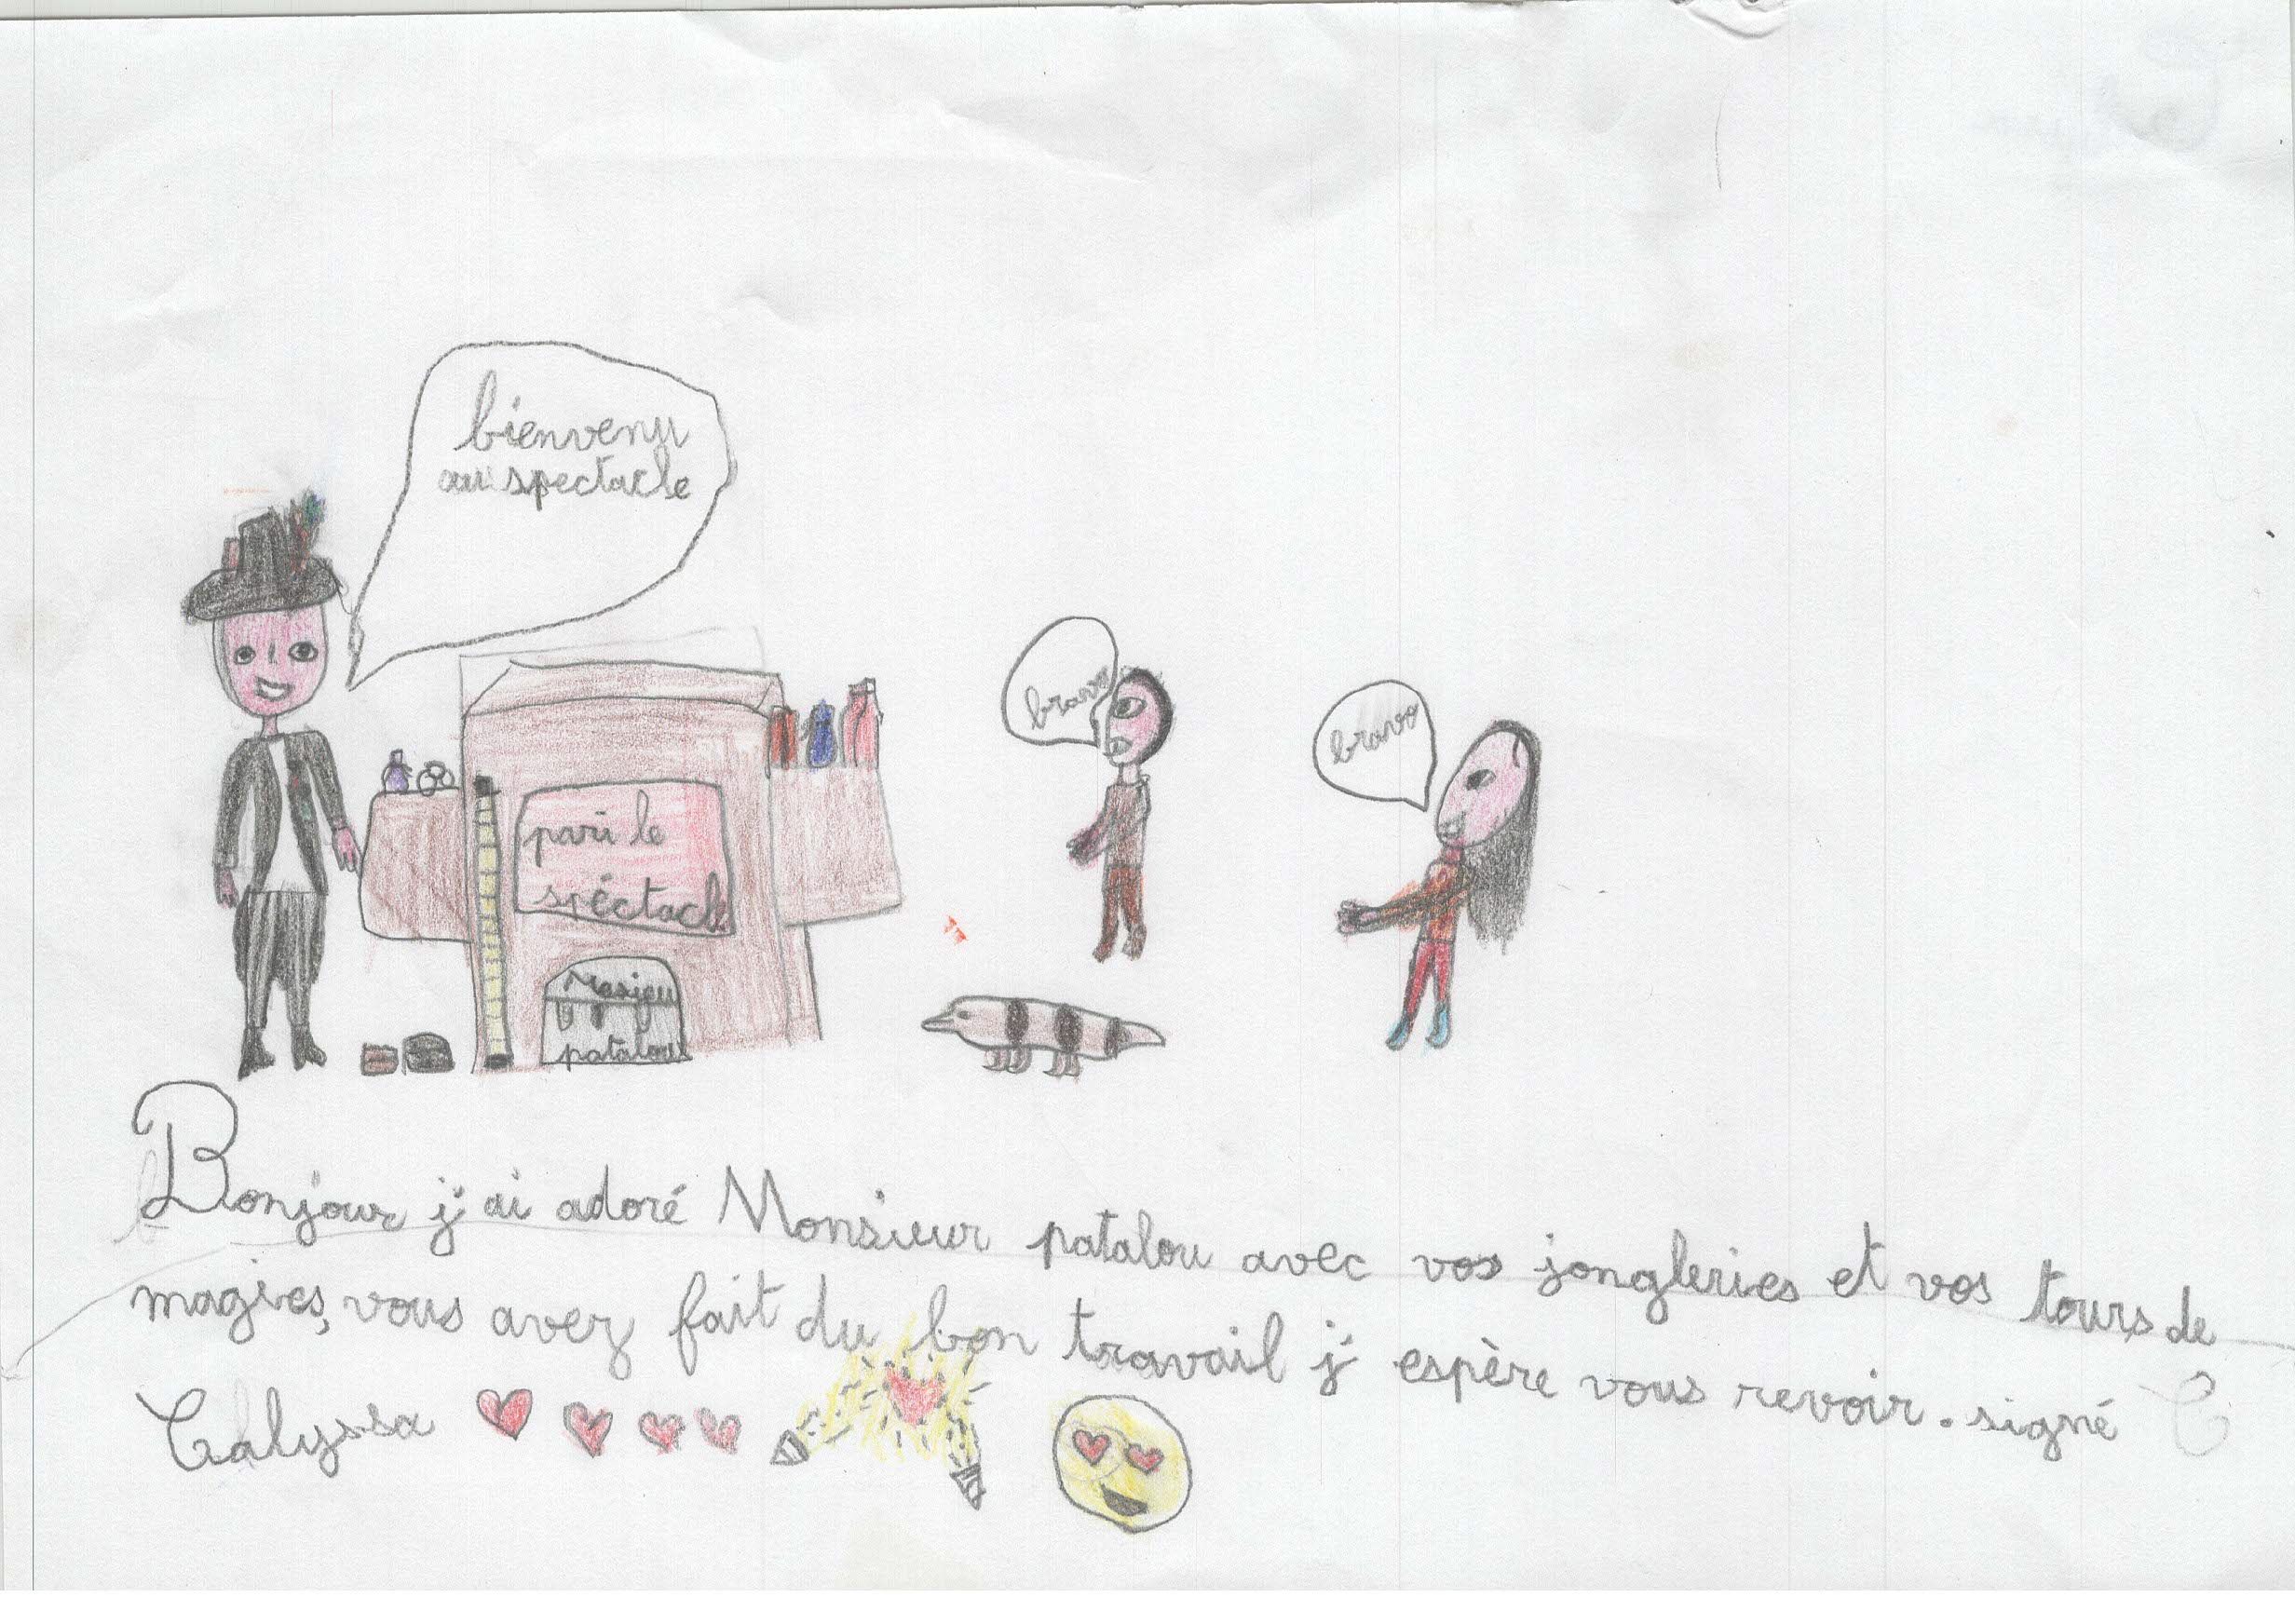 bienvenu
au spectacle
bravo
bravo
pari le
spéctacle
patalou
Bonjour j'ai adoré Monsieur patalou avec vos jongleries et vos tours de
magies, vous avez fait du bon travail j'espère vous revoir. signé
Calyssa